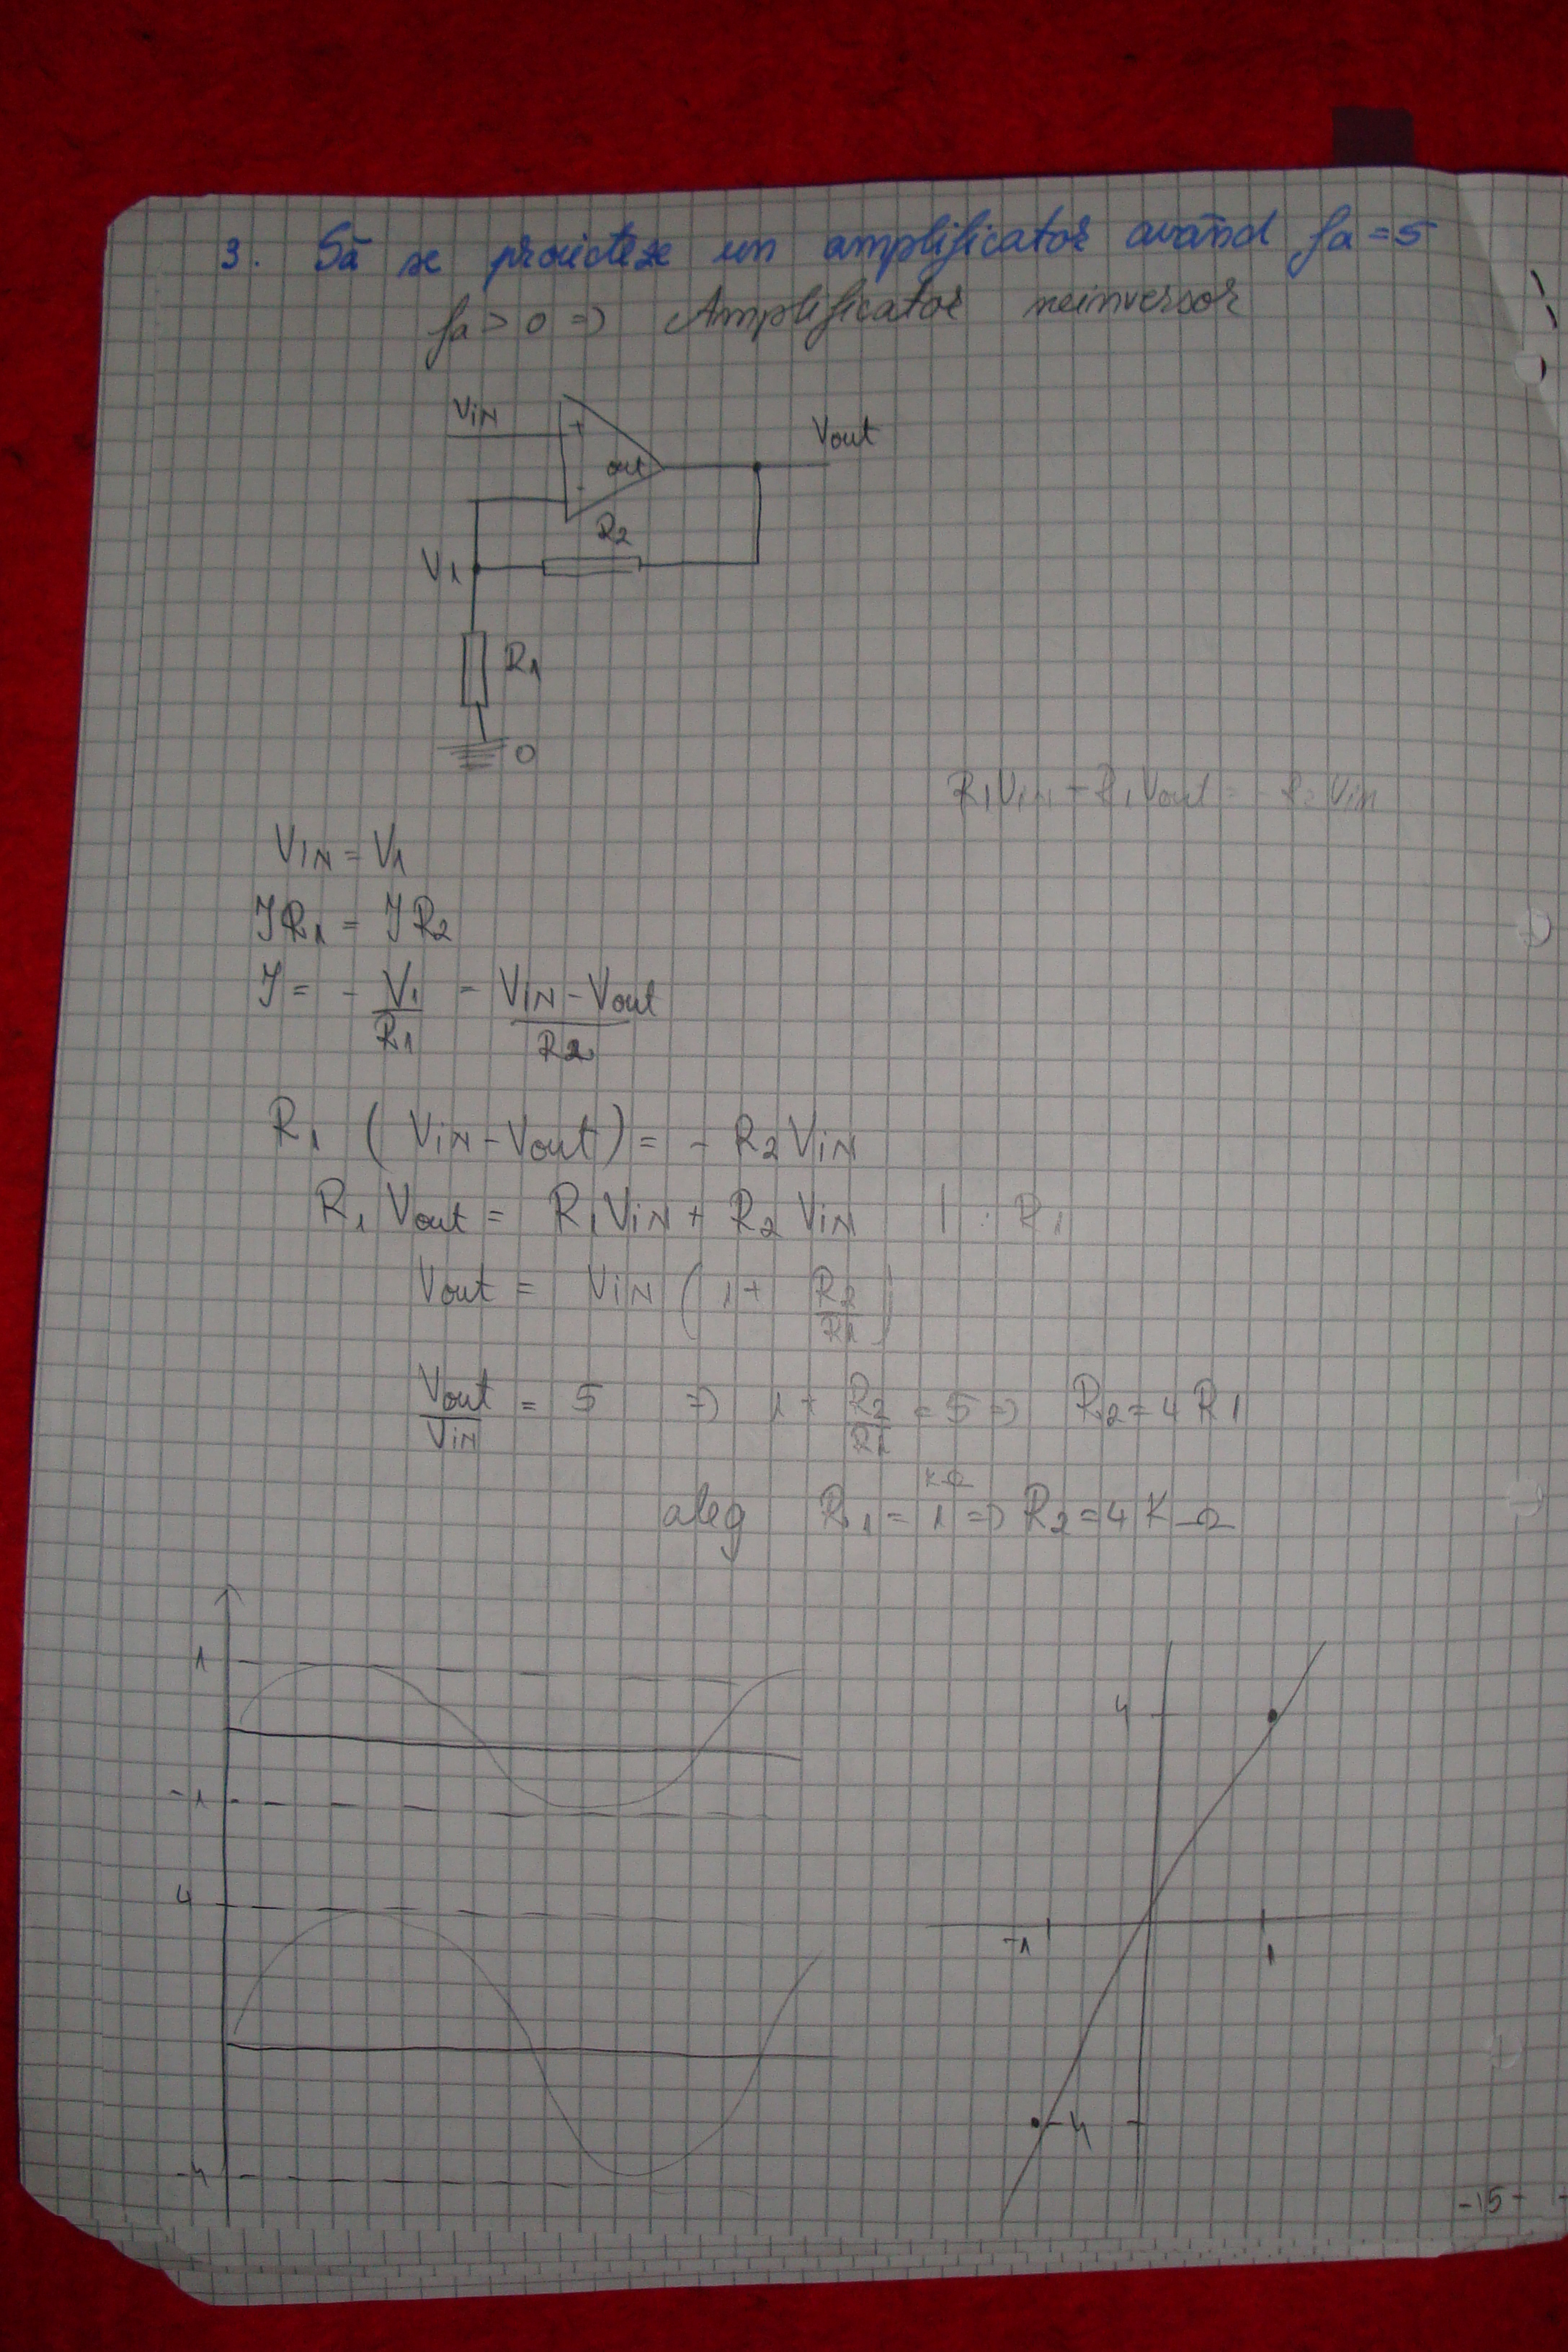 3. Să se proiecteze un amplificator având fa = 5
fa > 0 => Amplificator neinversor
VIN
+
out
-
Vout
R2
V1
R1
0
R1VIN - R1Vout = - R2 Vin
VIN = V1
IR1 = IR2
I = - V1/R1 = VIN - Vout/R2
R1 (VIN - Vout) = - R2 VIN
R1 Vout = R1 VIN + R2 VIN | : R1
Vout = VIN (1 + R2/R1)
Vout/VIN = 5 => 1 + R2/R1 = 5 => R2 = 4 R1
aleg R1 = 1 KΩ => R2 = 4 KΩ
1
-1
4
-4
4
-1
1
-4
-15-